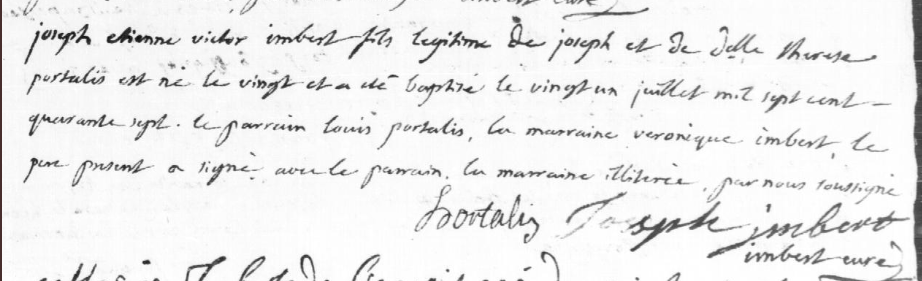 imbert curé
joseph etienne victor imbert fils legitime de joseph et de delle therese
portalis est né le vingt et a eté baptisé le vingt un juillet mil sept cent -
quarante sept. le parrain louis portalis, la marraine veronique imbert, le
pere present a signé avec le parrain. la marraine illiterée, par nous soussigné
LPortalis Joseph jmbert
imbert curé